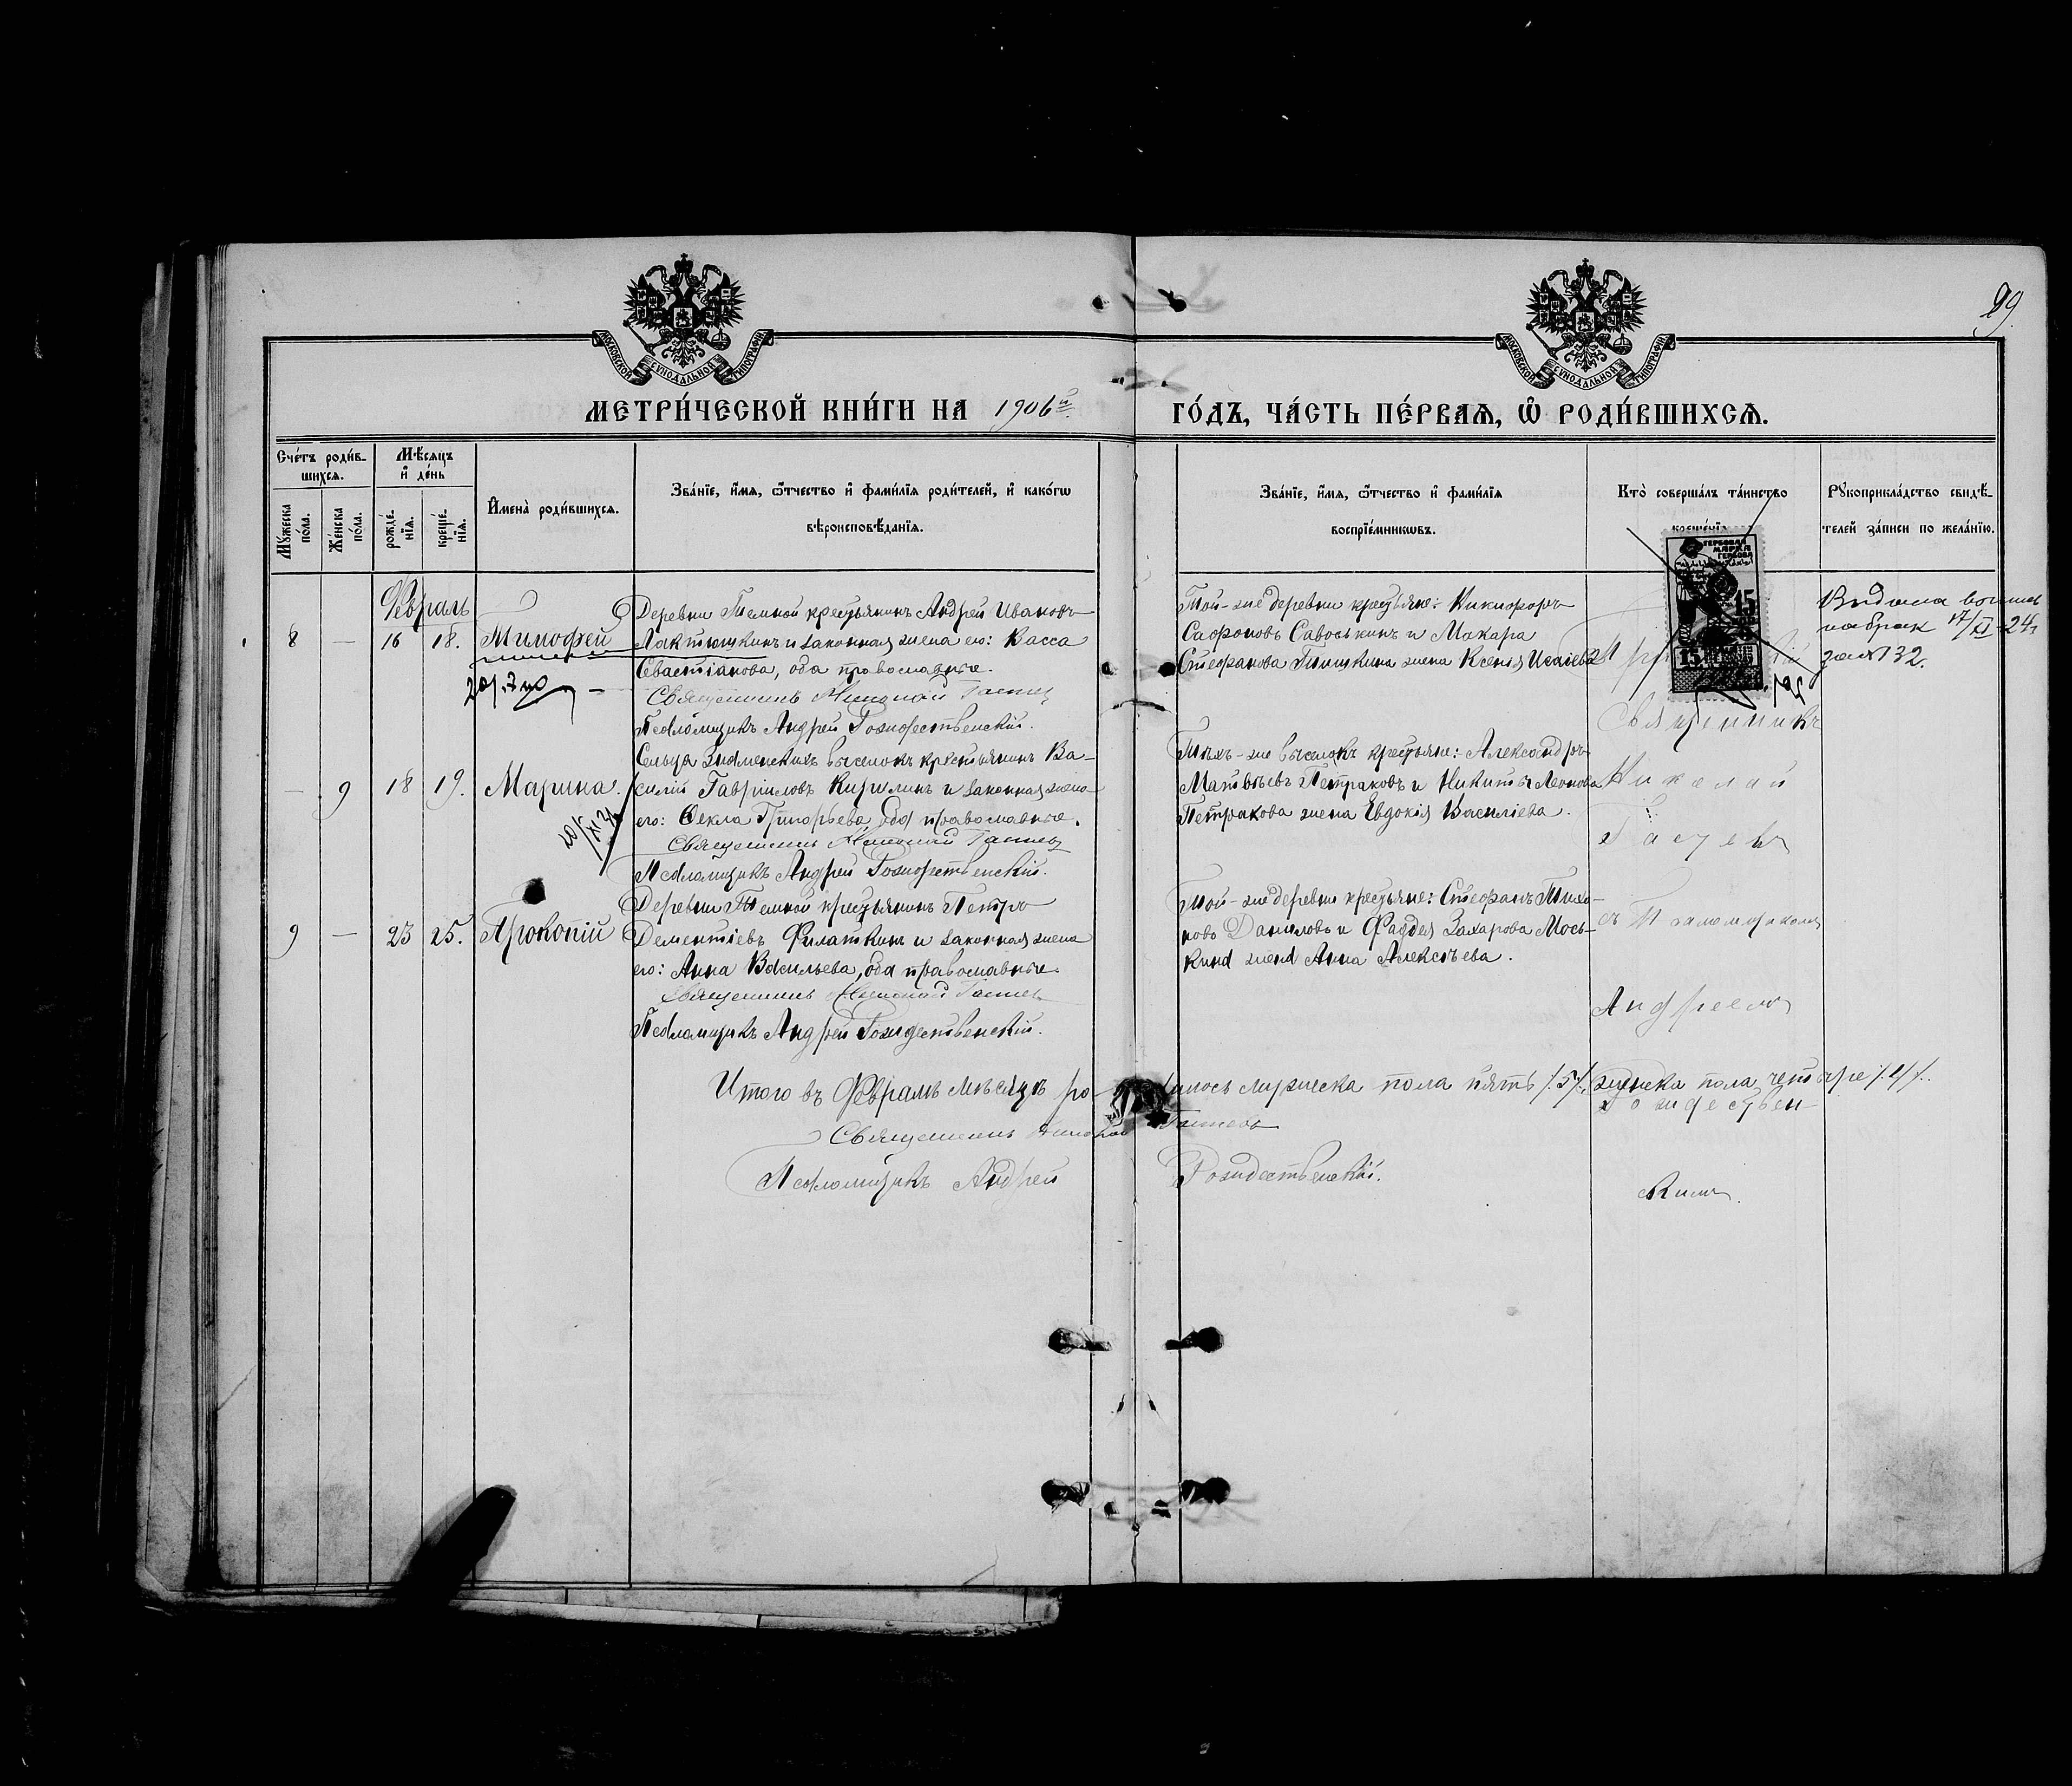 99.
МОСКОВСКОЙ СѴНОДАЛЬНОЙ ТИПОГРАФІИ
МОСКОВСКОЙ СѴНОДАЛЬНОЙ ТИПОГРАФІИ
МЕТРИ́ЧЕСКОЙ КНИ́ГИ НА 1906й ГО́ДЪ, ЧА́СТЬ ПЕ́РВАѦ, Ѡ҆ РОДИ́ВШИХСѦ.
Сче́тъ роди́в-
шихсѧ.
Мꙋ́жеска по́ла.
Же́нска по́ла.
Мѣ́сѧцъ
и҆ де́нь
рожде́-
нїѧ.
креще́-
нїѧ.
И҆мена̀ роди́вшихсѧ.
Зва́нїе, и҆́мѧ, ѻ҆́тчество и҆ фами́лїѧ роди́телей, и҆ како́гѡ
вѣроисповѣ́данїѧ.
Зва́нїе, и҆́мѧ, ѻ҆́тчество и҆ фами́лїѧ
воспрїе́мникѡвъ.
Кто̀ соверша́лъ та́инство
креще́нїѧ.
Рꙋкоприкла́дство свидѣ́-
телей за́писи по жела́нїю.
Февраль
8 — 16 18. Тимофей
Деревни Темной крестьянинъ Андрей Ивановъ
Лактюшкинъ и законная жена его: Васса
Севастіанова, оба православные.
Священникъ Николай Гастевъ
Псаломщикъ Андрей Рождественскій.
Той-же деревни крестьяне: Никифоръ
Сафроновъ Савоськинъ и Макара
Стефанова Тишкина жена Ксенія Исаіева
ГЕРБОВАЯ
МАРКА
15
15
Выдана
на брак 17/XI-24г
за № 132.
— 9 18 19. Марина.
20/XI 24
Сельца Знаменскихъ выселокъ крестьянинъ Ва-
силій Гавріиловъ Кирилинъ и законная жена
его: Ѳекла Григорьева, оба православные.
Священникъ Николай Гастевъ
Псаломщикъ Андрей Рождественскій.
Тѣхъ-же выселокъ крестьяне: Александръ
Матвѣевъ Петраковъ и Никиты Леонова
Петракова жена Евдокія Василіева.
9 — 23 25. Прокопій
Деревни Темной крестьянинъ Петръ
Дементіевъ Филаткинъ и законная жена
его: Анна Васильева, оба православные.
Священникъ Николай Гастевъ
Псаломщикъ Андрей Рождественскій.
Той-же деревни крестьяне: Стефанъ Тихо-
новъ Даниловъ и Фаддея Захарова Мось-
кина жена Анна Алексѣева.
Священникъ
Николай
Гастевъ
съ Псаломщикомъ
Андреемъ
Рождествен-
скимъ.
Итого въ Февралѣ мѣсяцѣ ро лось мужеска пола пять /.5/., женска пола четыре /.4/.
Священникъ Николай Гастевъ
Псаломщикъ Андрей Рождественскій.